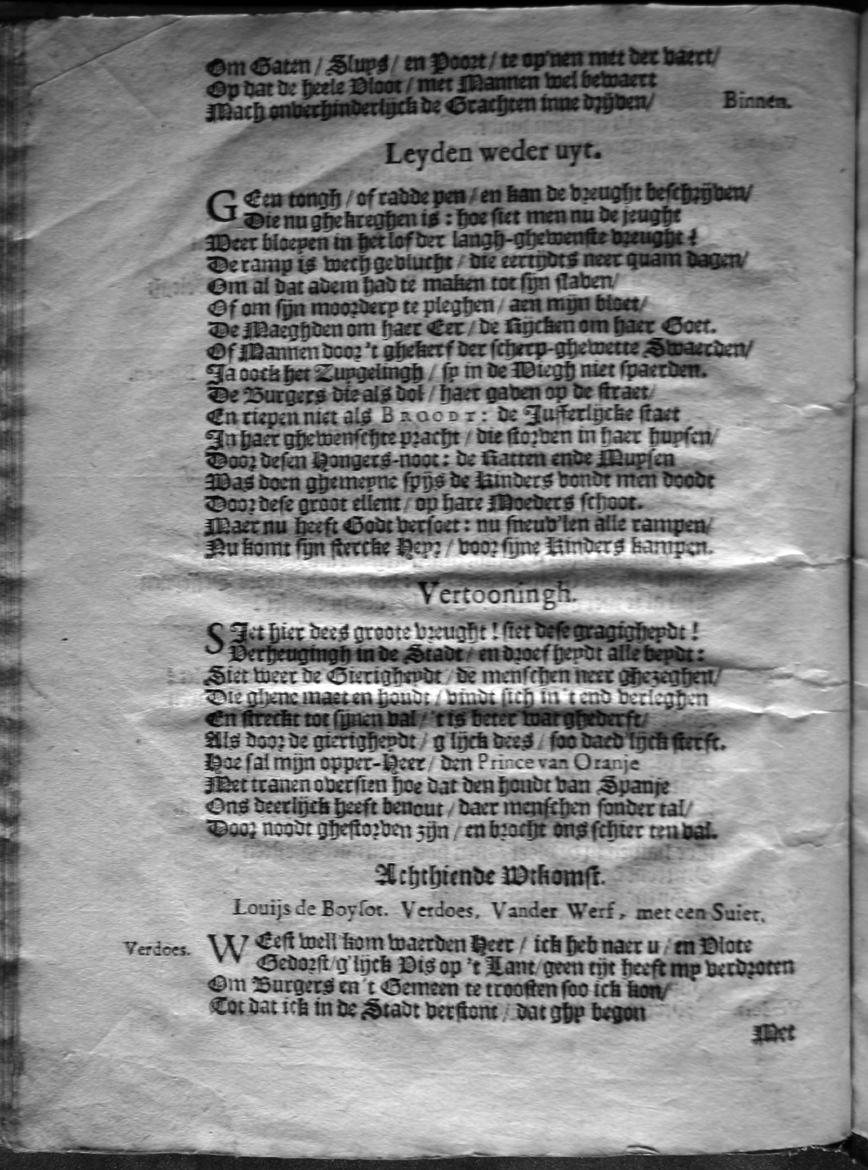 Om Gaten / Sluys / en Poort / te op'nen met der vaert /
Op dat de heele Vloot / met Mannen wel bewaert
Mach onverhinderlijck de Grachten inne drijven / Binnen.
Leyden weder uyt.
GEen tongh / of radde pen / en kan de vreught beschrijven /
Die nu ghekreghen is : hoe siet men nu de jeught
Weer bloeyen in het lof der langh-ghewenste vreught !
De ramp is wech gevlucht / die eertijdts neer quam dagen /
Om al dat adem had te maken tot sijn slaven /
Of om sijn moordery te pleghen / aen mijn bloet /
De Maeghden om haer Eer / de Rijcken om haer Goet.
Of Mannen door 't ghekerf der scherp-ghewette Swaerden /
Ja oock het Zuygelingh / sy in de Wiegh niet spaerden.
De Burgers die als dol / haer gaven op de straet /
En riepen niet als BROODT : de Jufferlijcke staet
In haer ghewenschte pracht / die storven in haer huysen /
Door desen Hongers-noot : de Katten ende Muysen
Was doen ghemeyne spijs de Kinders vondt men doodt
Door dese groot ellent / op hare Moeders schoot.
Maer nu heeft Godt versoet : nu sneuv'len alle rampen /
Nu komt sijn stercke Heyr / voor sijne Kinders kampen.
Vertooningh.
SIet hier dees groote vreught ! siet dese gragigheydt !
Verheugingh in de Stadt / en droefheydt alle beydt :
Siet weer de Gierigheydt / de menschen neer ghezeghen /
Die ghene maet en houdt / vindt sich in 't end verleghen
En streckt tot sijnen val / 't is beter wat ghederft /
Als door de gierigheydt / g'lijck dees / soo daed'lijck sterft.
Hoe sal mijn opper-Heer / den Prince van Oranje
Met tranen oversien hoe dat den houdt van Spanje
Ons deerlijck heeft benout / daer menschen sonder tal /
Door noodt ghestorven zijn / en brocht ons schier ten val.
Achthiende Wtkomst.
Louijs de Boysot. Verdoes, Vander Werf, met een Suiet.
Verdoes. WEest well'kom waerden Heer / ick heb naer u / en Vlote
Gedorst / g'lijck Vis op 't Lant / geen tijt heeft my verdroten
Om Burgers en 't Gemeen te troosten soo ick kon /
Tot dat ick in de Stadt verstont / dat ghy begon
Met